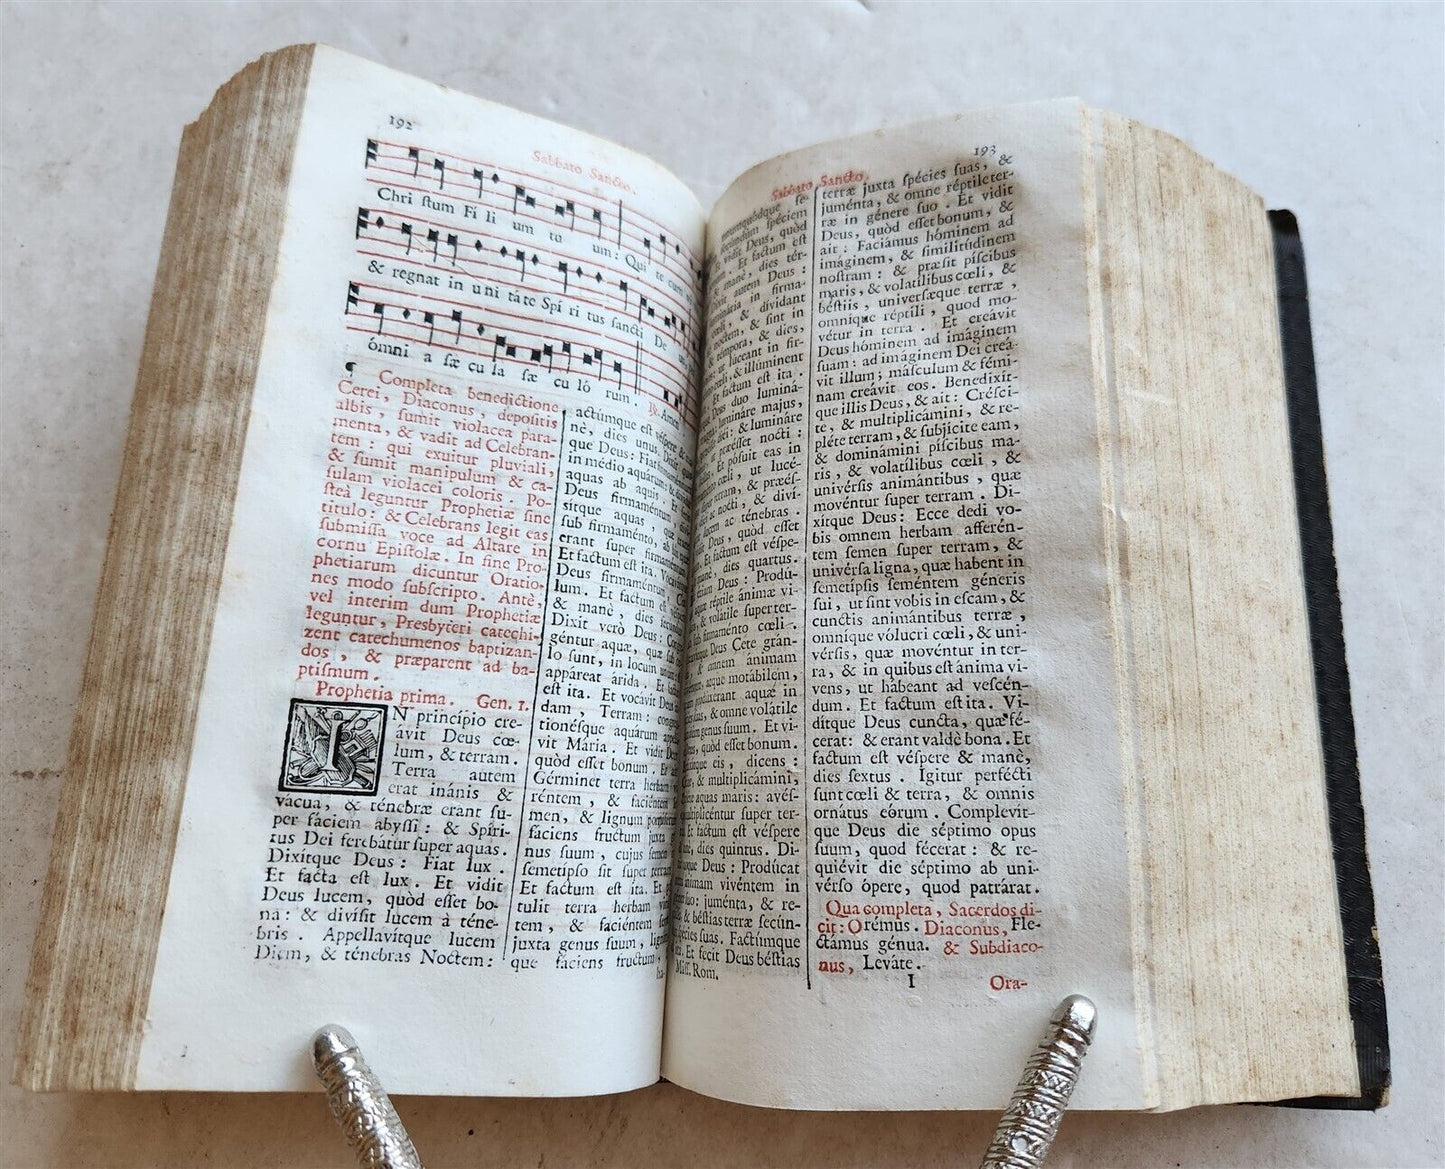 192
Sabbato Sancto.
Chri ſtum Fi li um tu um: Qui te cum
& regnat in u ni tá te Spí ri tus ſancti De
ómni a ſæ cu la ſæ cu ló rum. ℟. Amen
¶ Completa benedictione
Cerei, Diaconus, depoſitis
albis, ſumit violacea para-
menta, & vadit ad Celebran-
tem: qui exuitur pluviali,
& ſumit manipulum & ca-
ſulam violacei coloris. Po-
ſteà leguntur Prophetiæ ſine
titulo: & Celebrans legit eas
ſubmiſſa voce ad Altare in
cornu Epiſtolæ. In fine Pro-
phetiarum dicuntur Oratio-
nes modo ſubſcripto. Antè,
vel interim dum Prophetiæ
leguntur, Presbyteri catechi-
zent catechumenos baptizan-
dos, & præparent ad ba-
ptiſmum.
Prophetia prima. Gen. 1.
IN princípio cre-
ávit Deus cœ-
lum, & terram.
Terra autem
erat inánis &
vácua, & ténebræ erant ſu-
per fáciem abyſſi: & Spíri-
tus Dei ferebátur ſuper aquas.
Dixítque Deus: Fiat lux.
Et facta eſt lux. Et vidit
Deus lucem, quòd eſſet bo-
na: & diviſit lucem à téne-
bris. Appellavítque lucem
Diem, & ténebras Noctem:
actúmque eſt véſpere &
nè, dies unus. Dixit
que Deus: Fiat firma
in médio aquárum: &
aquas ab aquis. Et
Deus firmaméntum,
sítque aquas, quæ
ſub firmaménto, ab
erant ſuper firmamén
Et factum eſt ita.
Deus firmaméntum, Cœ
lum. Et factum eſt
& manè, dies ſecún
Dixit verò Deus: Con
géntur aquæ, quæ ſub
lo ſunt, in locum unum
appáreat árida. Et
eſt ita. Et vocávit Deus
dam, Terram: congre
tionéſque aquárum appel
vit Mária. Et vidit Deus
quòd eſſet bonum. Et
Gérminet terra herbam
réntem, & faciéntem
men, & lignum
fáciens fructum juxta
nus ſuum, cujus ſemen
ſemetípſo ſit ſuper terram
Et factum eſt ita. Et
tulit terra herbam
tem, & faciéntem
juxta genus ſuum, lign
que fáciens fructum,
ha-
193
Sabbato Sancto.
umquódque ſe-
ſpéciem
vidit Deus, quòd
Et factum eſt
manè, dies tér-
Dixit autem Deus:
in firma-
& dívidant
noctem, & ſint in
témpora, & dies,
ut lúceant in fir-
cœli, & illúminent
Et factum eſt ita.
Deus duo luminá-
lumináre majus,
& lumináre
præéſſet nocti:
Et póſuit eas in
cœli, ut lucé-
terram, & præéſ-
nocti, & diví-
lucem ac ténebras.
Deus, quòd eſſet
factum eſt véſpe-
manè, dies quartus.
Deus: Prodú-
réptile ánimæ vi-
volátile ſuper ter-
firmaménto cœli.
Deus Cete grán-
omnem ánimam
atque motábilem,
aquæ in
& omne volátile
genus ſuum. Et vi-
Deus, quòd eſſet bonum.
eis, dicens:
& multiplicámini,
aquas maris: avéſ-
multiplicéntur ſuper ter-
Et factum eſt véſpere
manè, dies quintus. Di-
Deus: Prodúcat
ánimam vivéntem in
ſuo: juménta, & re-
& béſtias terræ ſecún-
ſpécies ſuas. Factúmque
ita. Et fecit Deus béſtias
Miſſ. Rom.
terræ juxta ſpécies ſuas, &
juménta, & omne réptile ter-
ræ in génere ſuo. Et vidit
Deus, quòd eſſet bonum, &
ait: Faciámus hóminem ad
imáginem, & ſimilitúdinem
noſtram: & præſit píſcibus
maris, & volatílibus cœli, &
béſtiis, universæque terræ,
omníque réptili, quod mo-
vétur in terra. Et creávit
Deus hóminem ad imáginem
ſuam: ad imáginem Dei creá-
vit illum; máſculum & fémi-
nam creávit eos. Benedixít-
que illis Deus, & ait: Créſci-
te, & multiplicámini, & re-
pléte terram, & ſubjícite eam,
& dominámini píſcibus ma-
ris, & volatílibus cœli, &
univérſis animántibus, quæ
movéntur ſuper terram. Di-
xítque Deus: Ecce dedi vo-
bis omnem herbam afferén-
tem ſemen ſuper terram, &
univérſa ligna, quæ habent in
ſemetípſis ſeméntem géneris
ſui, ut ſint vobis in eſcam, &
cunctis animántibus terræ,
omníque vólucri cœli, & uni-
vérſis, quæ movéntur in ter-
ra, & in quibus eſt ánima vi-
vens, ut hábeant ad veſcén-
dum. Et factum eſt ita. Vi-
dítque Deus cuncta, quæ fé-
cerat: & erant valdè bona. Et
factum eſt véſpere & manè,
dies ſextus. Igitur perfécti
ſunt cœli & terra, & omnis
ornátus eórum. Complevít-
que Deus die séptimo opus
ſuum, quod fécerat: & re-
quiévit die séptimo ab uni-
vérſo ópere, quod patrárat.
Qua completa, Sacerdos di-
cit: Orémus. Diaconus, Fle-
ctámus génua. & Subdiaco-
nus, Leváte.
I Ora-